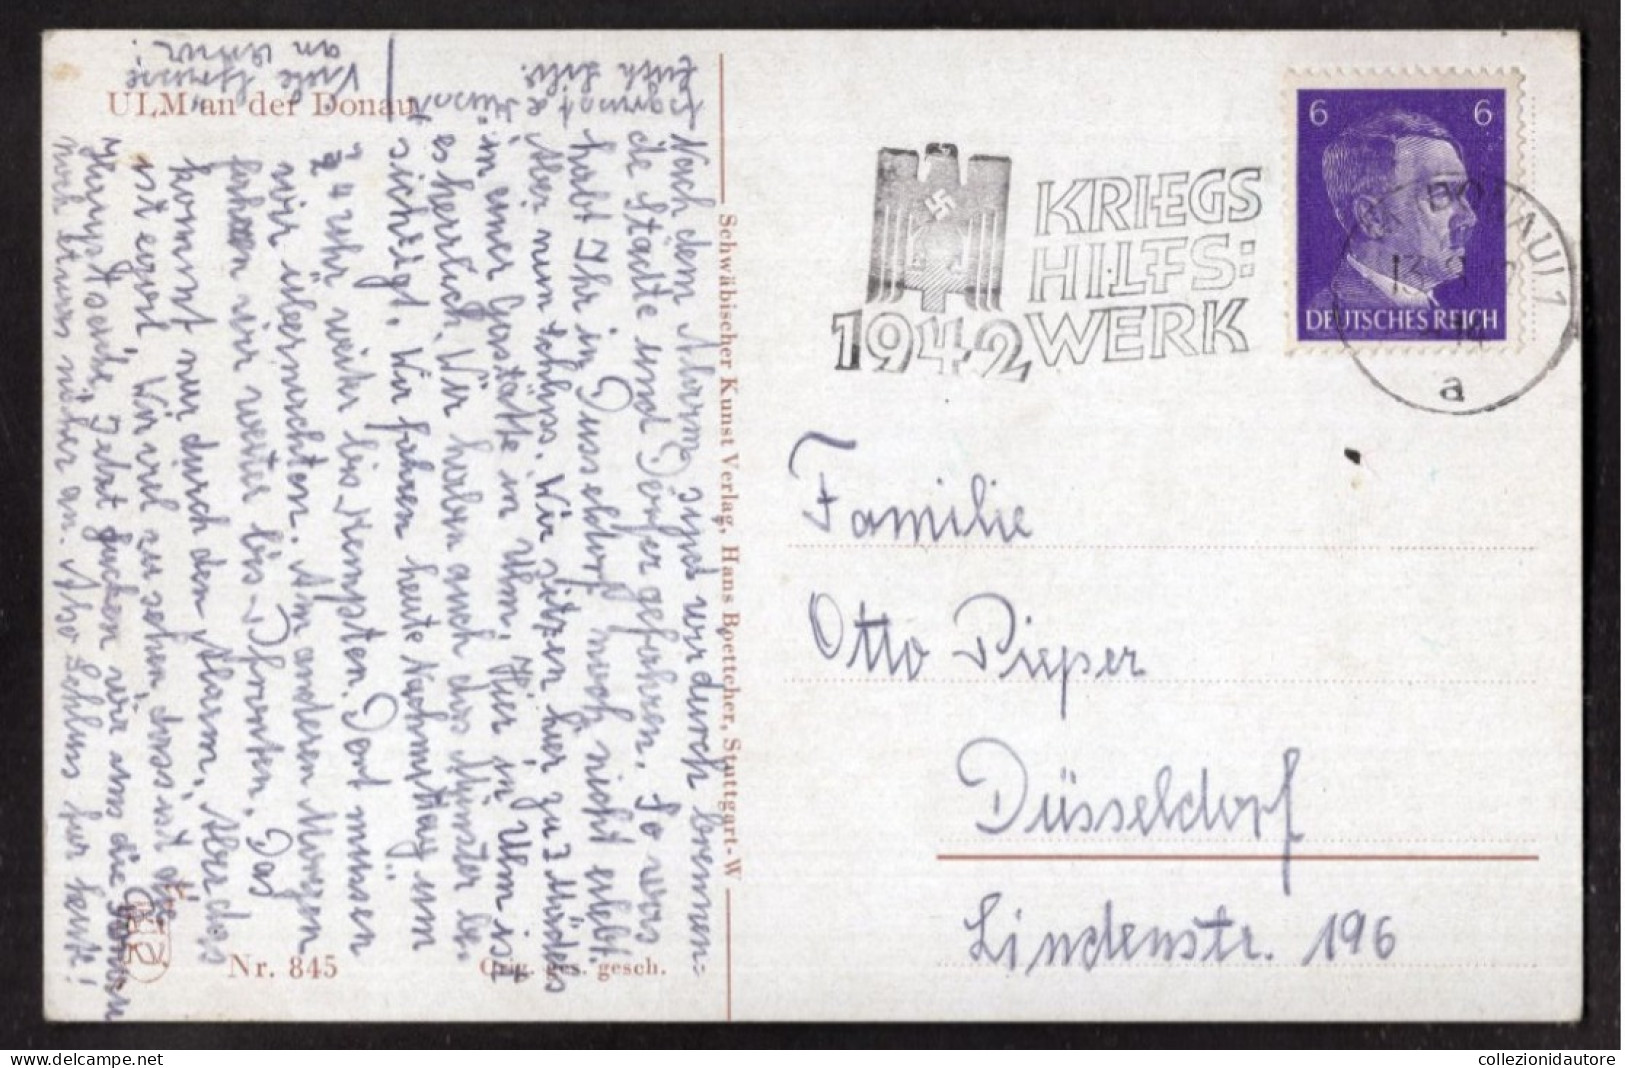 ULM an der Donau
Nach dem Alarm sind wir durch brennen=
de Städte und Dörfer gefahren. So was
habt Ihr in Düsseldorf noch nicht erlebt.
Aber nun Schluss. Wir sitzen hier zu 3 Mädels
in einer Gaststätte in Ulm. Hier in Ulm ist
es herrlich. Wir haben auch das Münster be
sichtigt. Wir fahren heute Nachmittag um
4 Uhr weiter bis Kempten. Dort müssen
wir übernachten. Am anderen Morgen
fahren wir weiter bis Pfronten. Das
kommt nur durch den Alarm. Aber das
ist egal. Wir viel zu sehen, dass ist die
Hauptsache. Jetzt gucken wir uns die
noch etwas näher an. Also Schluss für heute!
Viele Grüsse
an
Euch
Schwäbischer Kunst Verlag, Hans Boettcher, Stuttgart-W
Nr. 845
Orig. ges. gesch.
KRIEGS
HILFS:
1942 WERK
6 6
DEUTSCHES REICH
DONAU) 1
a
Familie
Otto Pieper
Düsseldorf
Lindenstr. 196
collezionidautore